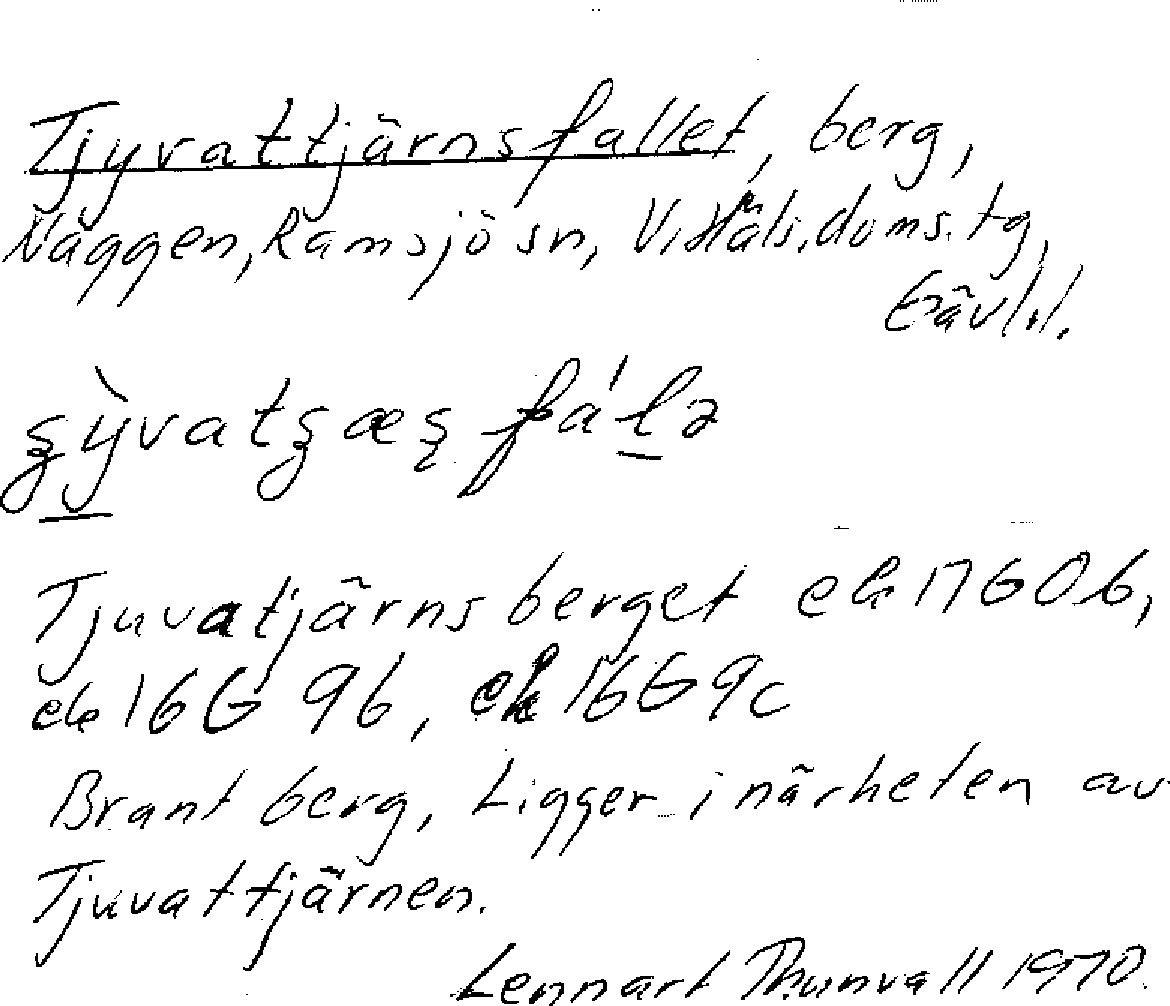 Tjyvattjärnsfallet, berg,
Näggen, Ramsjö sn, V. Häls. doms. tg,
Gävl. l.
Tjuvatjärnsberget ek 17G0b,
ek 16G 9b, ek 16G9c
Brant berg, Ligger i närheten av
Tjuvattjärnen.
Lennart Thunvall 1970.